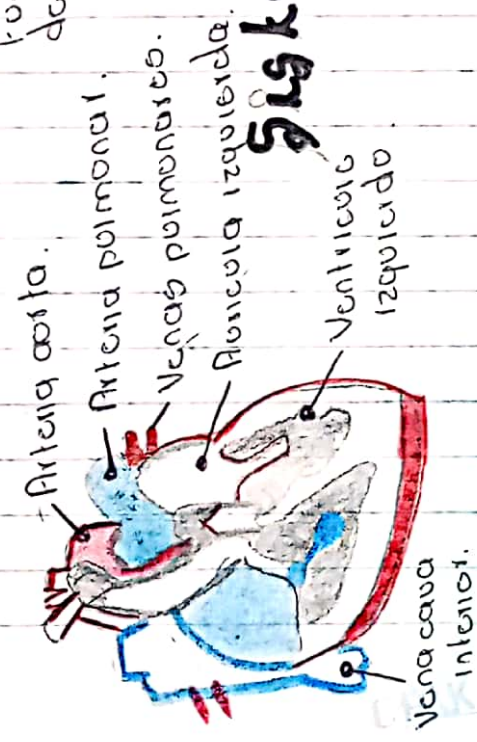 Arteria aorta.
Arteria pulmonar.
Venas pulmonares.
Auricula izquierda.
Ventriculo
izquierdo
Vena cava
interior.